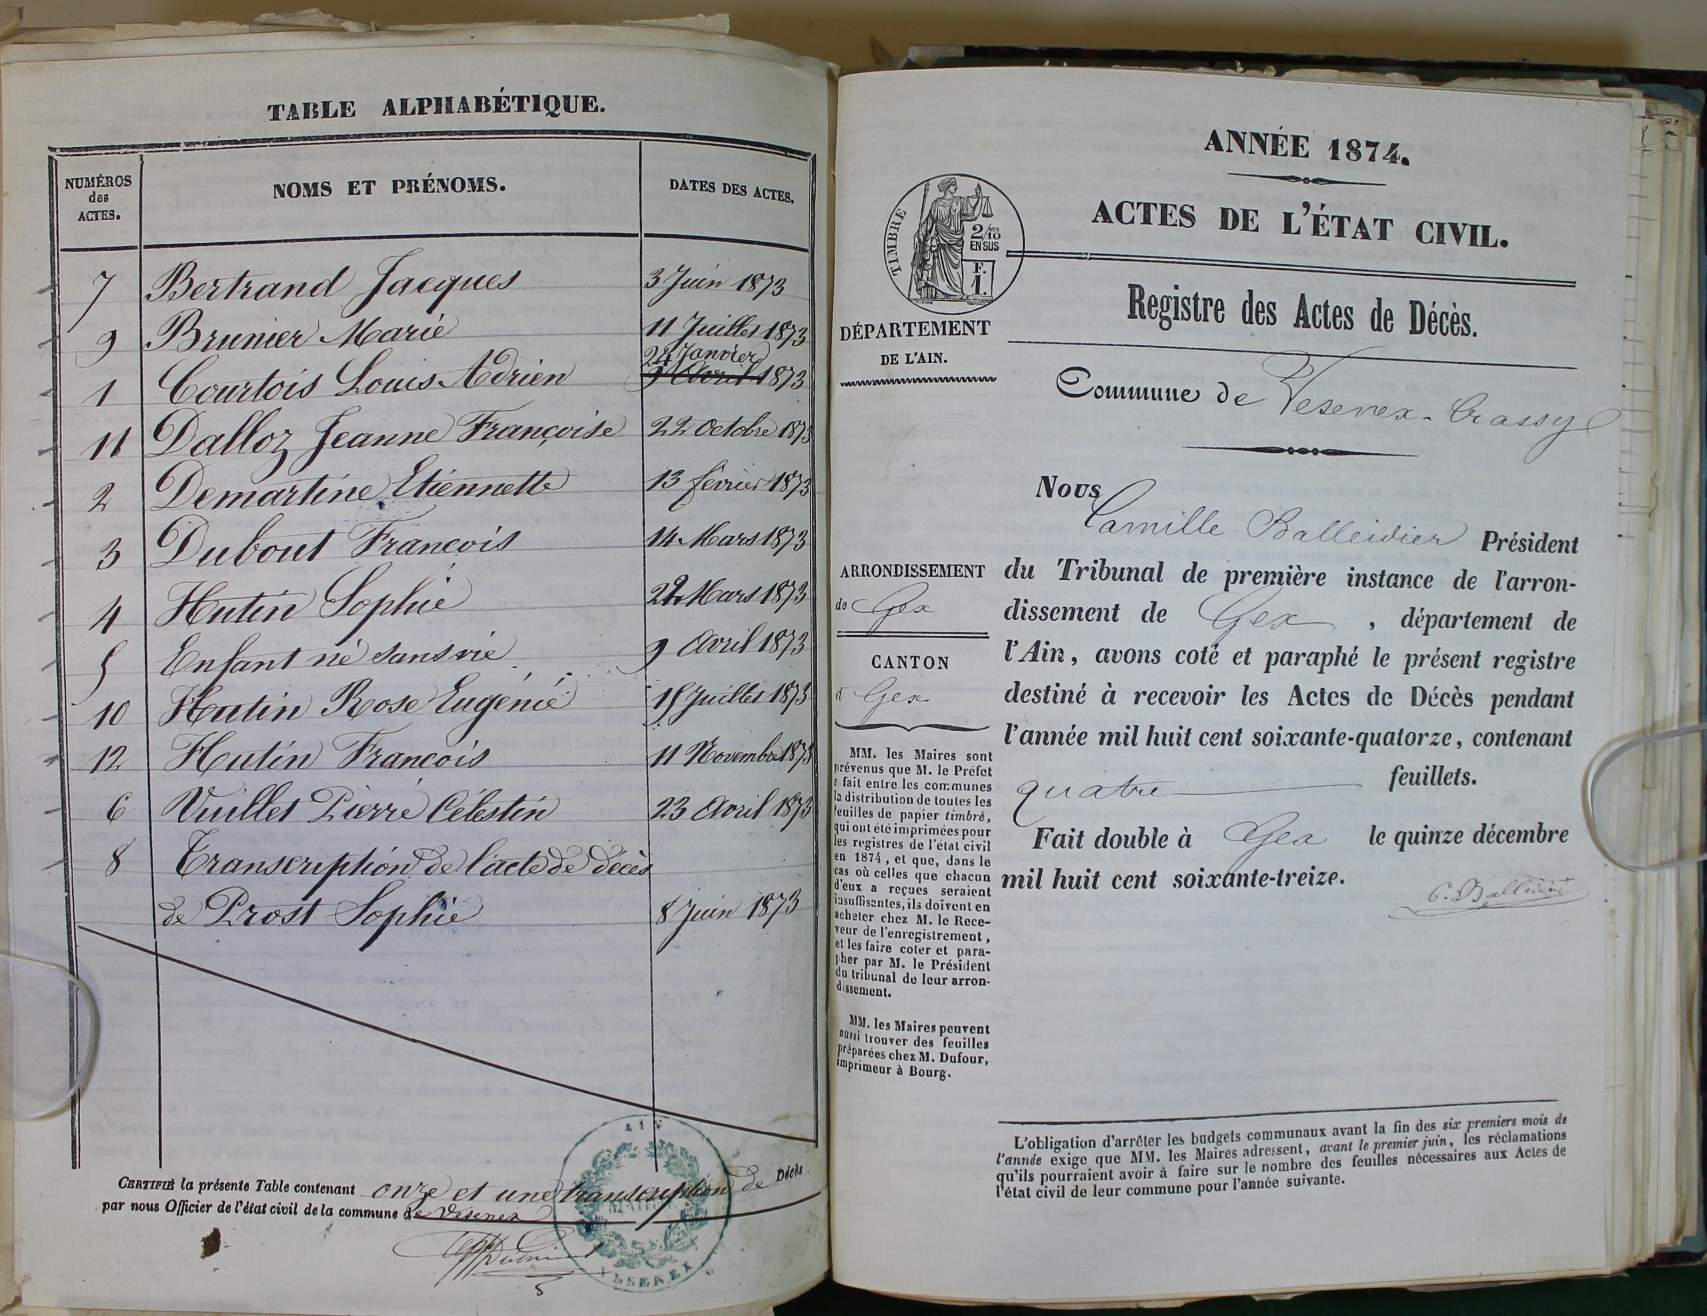 TABLE ALPHABÉTIQUE.
NUMÉROS des ACTES.
NOMS ET PRÉNOMS.
DATES DES ACTES.
7 Bertrand Jacques 3 Juin 1873
9 Brunier Marie 11 Juillet 1873
24 Janvier
1 Courtois Louis Adrien 9 Avril 1873
11 Dalloz Jeanne Françoise 22 Octobre 1873
2 Demartine Etiennette 13 février 1873
3 Dubout François 14 Mars 1873
4 Hutin Sophie 22 Mars 1873
5 Enfant né sans vie 9 Avril 1873
10 Hutin Rose Eugénie 15 Juillet 1873
12 Hutin François 11 Novembre 1873
6 Vuillet Pierre Célestin 23 Avril 1873
8 Transcription de l'acte de décès
de Prost Sophie 8 Juin 1873
CERTIFIÉ la présente Table contenant onze et une transcription de Décès
par nous Officier de l'état civil de la commune de Vesenex
AIN
MAIRIE
VESENEX
ANNÉE 1874.
ACTES DE L'ÉTAT CIVIL.
TIMBRE
2/10
EN SUS
F.
1.
Registre des Actes de Décès.
DÉPARTEMENT
DE L'AIN.
Commune de Vesenex-Crassy
Nous Camille Balleidier Président
du Tribunal de première instance de l'arron-
dissement de Gex, département de
l'Ain, avons coté et paraphé le présent registre
destiné à recevoir les Actes de Décès pendant
l'année mil huit cent soixante-quatorze, contenant
quatre feuillets.
Fait double à Gex le quinze décembre
mil huit cent soixante-treize.
C. Balleidier
ARRONDISSEMENT
de Gex
CANTON
d Gex
MM. les Maires sont
prévenus que M. le Préfet
a fait entre les communes
la distribution de toutes les
feuilles de papier timbré,
qui ont été imprimées pour
les registres de l'état civil
en 1874, et que, dans le
cas où celles que chacun
d'eux a reçues seraient
insuffisantes, ils doivent en
acheter chez M. le Rece-
veur de l'enregistrement,
et les faire coter et para-
pher par M. le Président
du tribunal de leur arron-
dissement.
MM. les Maires peuvent
aussi trouver des feuilles
préparées chez M. Dufour,
imprimeur à Bourg.
L'obligation d'arrêter les budgets communaux avant la fin des six premiers mois de
l'année exige que MM. les Maires adressent, avant le premier juin, les réclamations
qu'ils pourraient avoir à faire sur le nombre des feuilles nécessaires aux Actes de
l'état civil de leur commune pour l'année suivante.